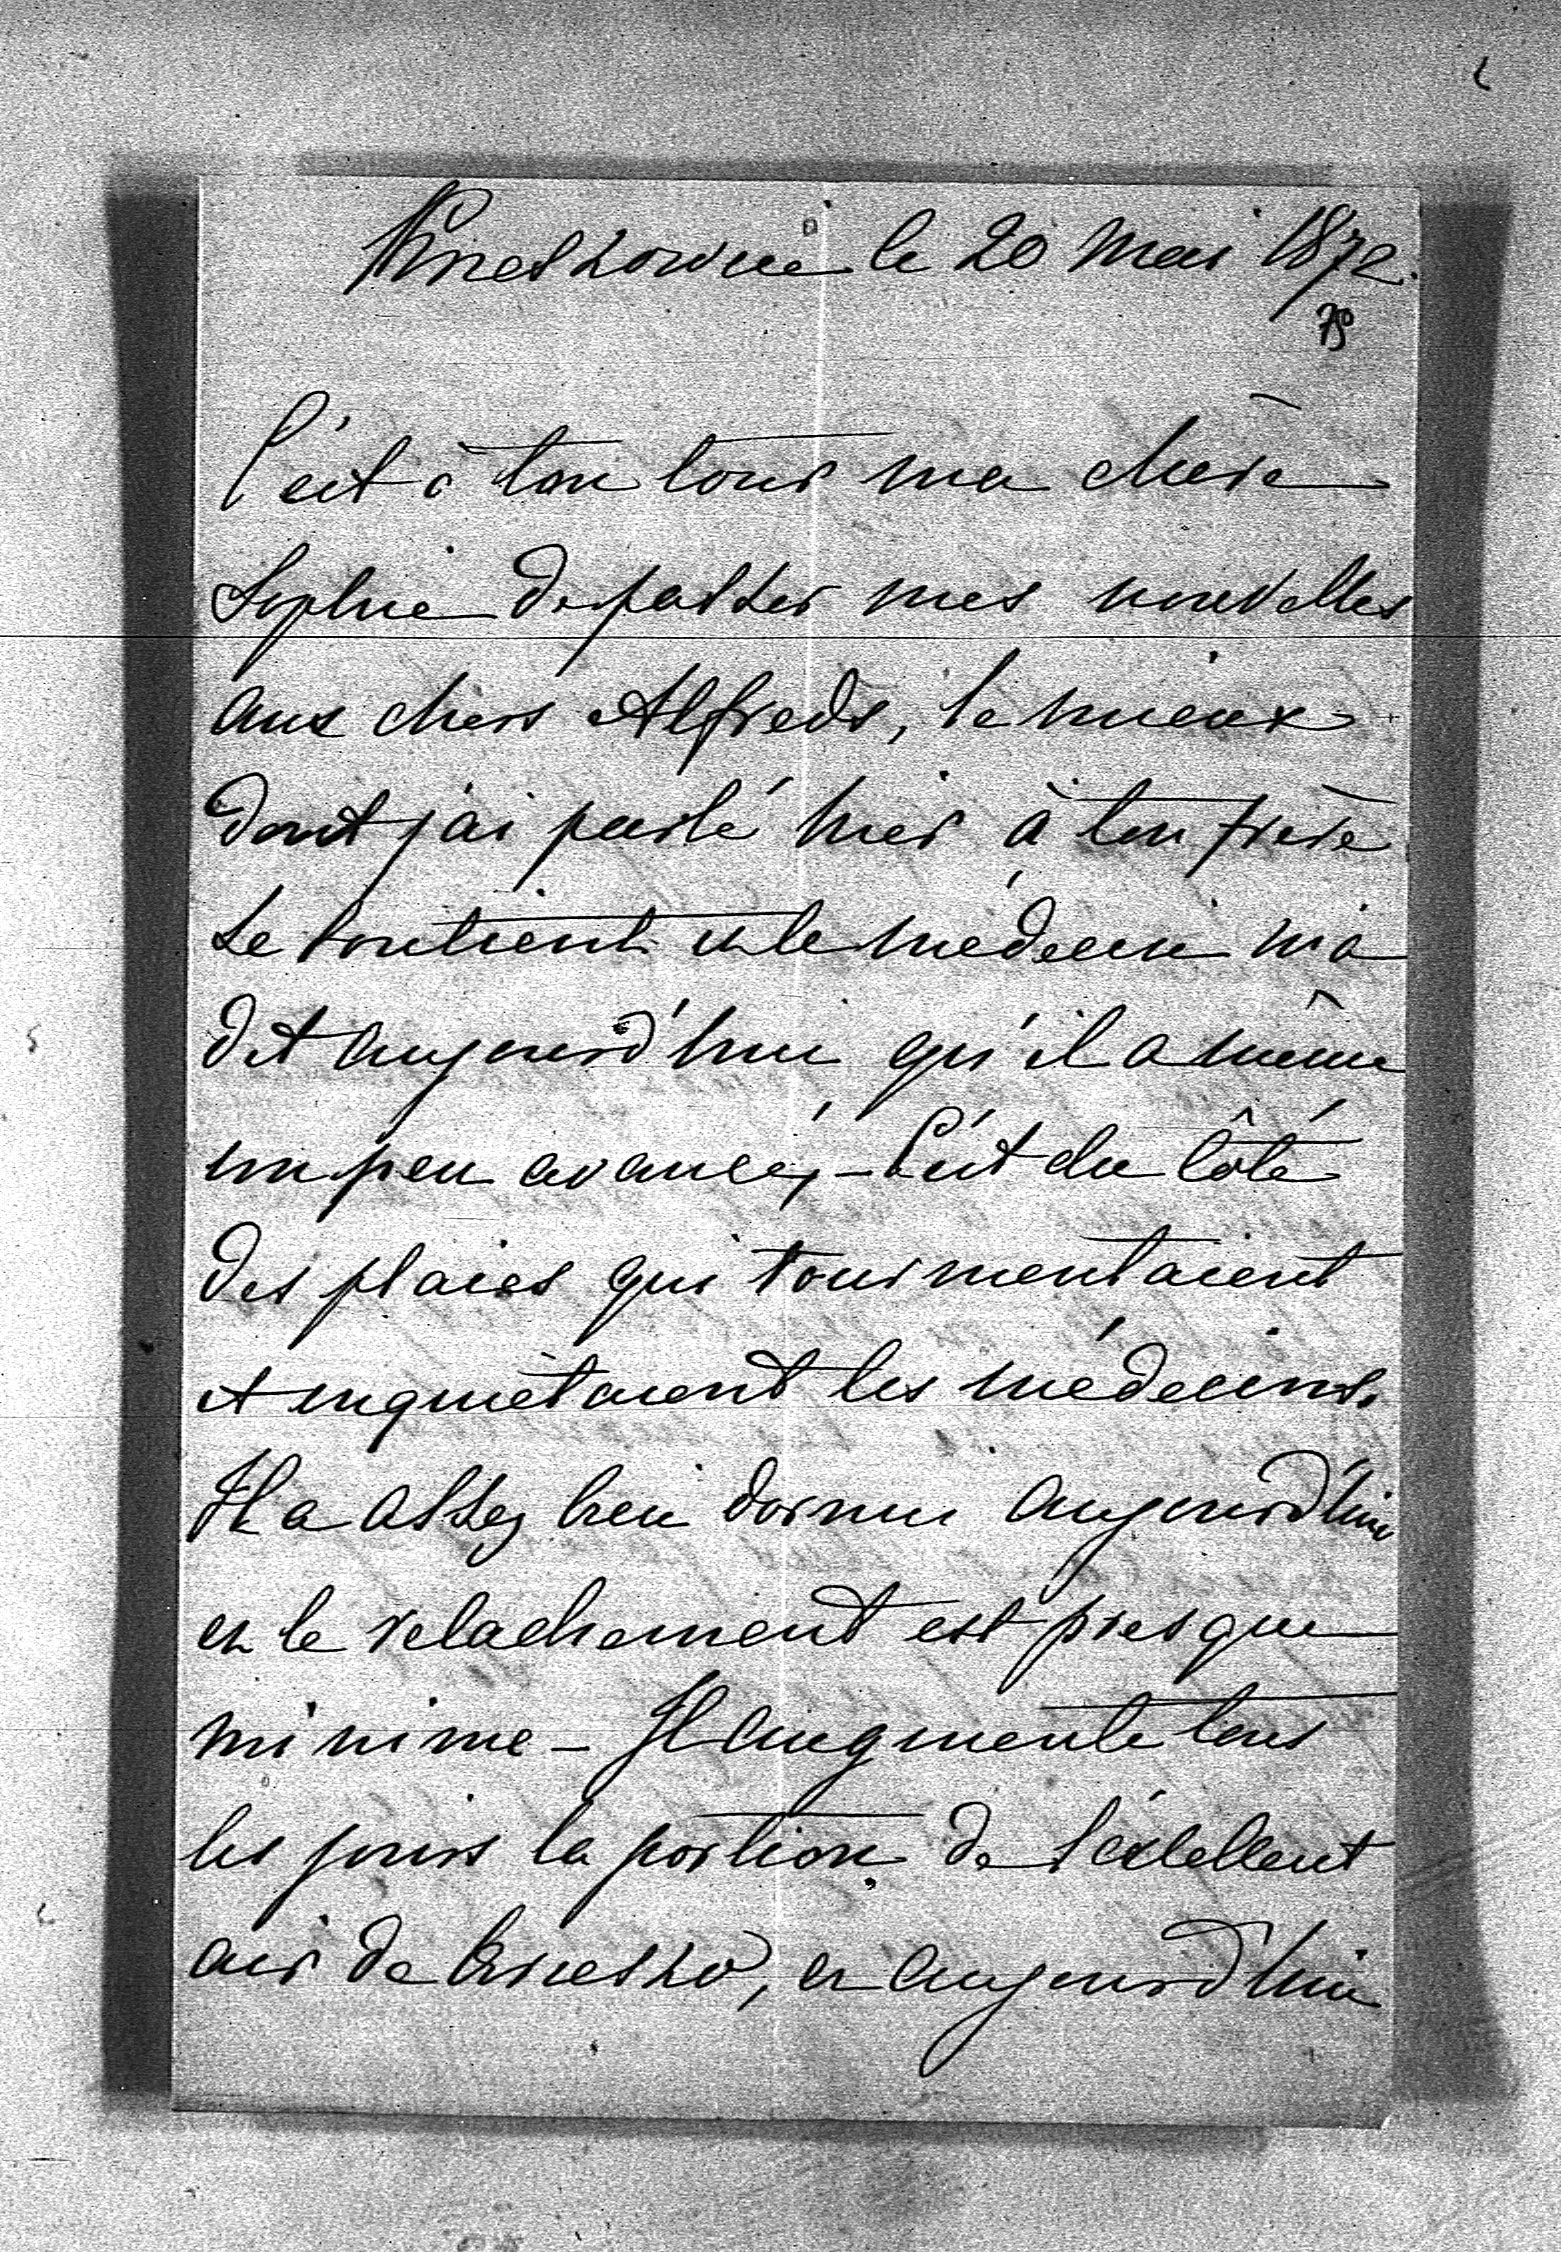 Krzeszowice le 20 Mai 1872.
78
C'est à ton tour ma chère
Sophie de passer mes nouvelles
aux chers Alfreds, le mieux
dont j'ai parlé hier à ton frère
se soutient et le médecin m'a
dit aujourd'hui qu'il a même
un peu avancé, - C'est du côté
des plaies qui tourmentaient
et inquiètaient les médecins.
Il a assez bien dormi aujourd'hui
et le relachement est presque
minime - Il augmente tous
les jours la portion de l'excellent
air de Krzeszo, et aujourd'hui